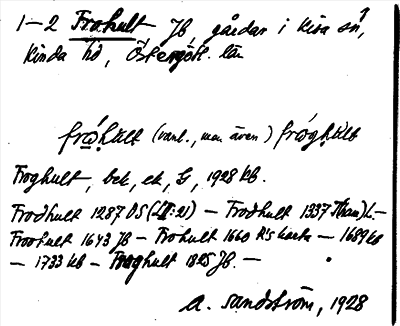 1-2 Frohult JB, gårdar i Kisa sn,
Kinda hd, Östergötl. län
fróhult (vanl., men även) fróghult
Froghult, bek, ek, G, 1928 kb.
Frodhult 1287 DS (II:21) – Frodhult 1337
Froohult 1643 JB – Frohult 1660 R's karta – 1689 kb
– 1733 kb – Froghult 1825 JB. –
A. Sandström, 1928